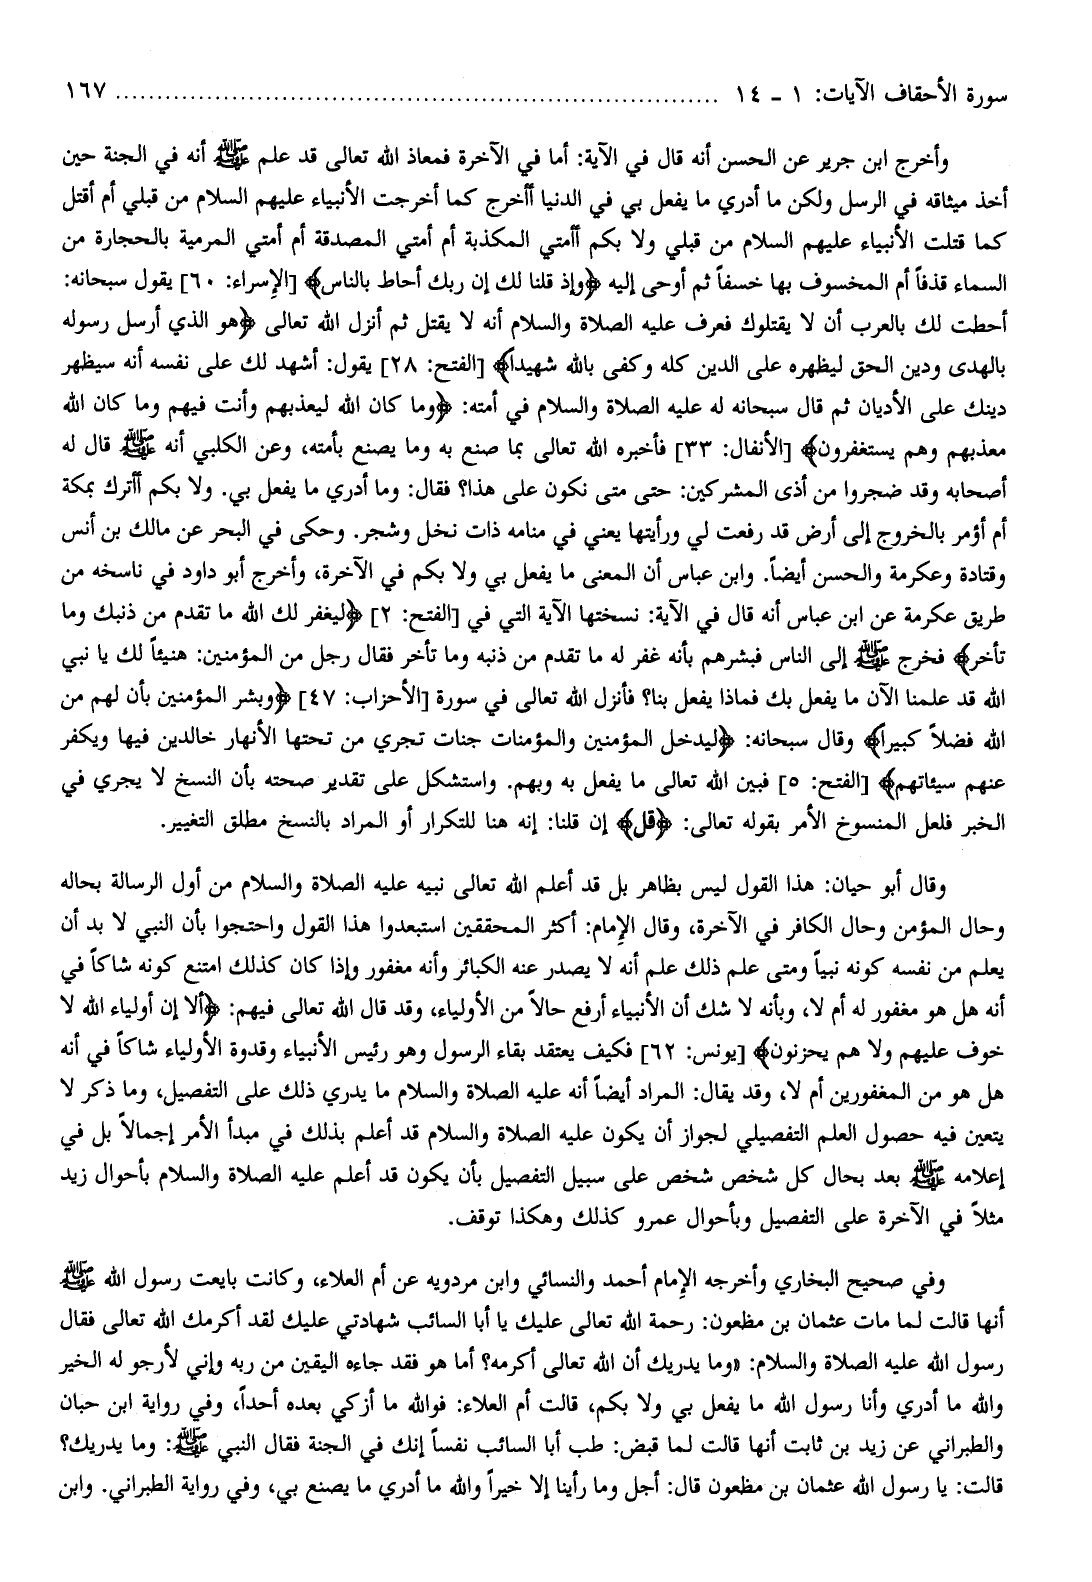 سورة الأحقاف الآيات: ١ ـ ١٤ ........................................................................ ١٦٧
وأخرج ابن جرير عن الحسن أنه قال في الآية: أما في الآخرة فمعاذ الله تعالى قد علم ﷺ أنه في الجنة حين
أخذ ميثاقه في الرسل ولكن ما أدري ما يفعل بي في الدنيا أأخرج كما أخرجت الأنبياء عليهم السلام من قبلي أم أقتل
كما قتلت الأنبياء عليهم السلام من قبلي ولا بكم أأمتي المكذبة أم أمتي المصدقة أم أمتي المرمية بالحجارة من
السماء قذفاً أم المخسوف بها خسفاً ثم أوحى إليه ﴿وإذ قلنا لك إن ربك أحاط بالناس﴾ [الإسراء: ٦٠] يقول سبحانه:
أحطت لك بالعرب أن لا يقتلوك فعرف عليه الصلاة والسلام أنه لا يقتل ثم أنزل الله تعالى ﴿هو الذي أرسل رسوله
بالهدى ودين الحق ليظهره على الدين كله وكفى بالله شهيداً﴾ [الفتح: ٢٨] يقول: أشهد لك على نفسه أنه سيظهر
دينك على الأديان ثم قال سبحانه له عليه الصلاة والسلام في أمته: ﴿وما كان الله ليعذبهم وأنت فيهم وما كان الله
معذبهم وهم يستغفرون﴾ [الأنفال: ٣٣] فأخبره الله تعالى بما صنع به وما يصنع بأمته، وعن الكلبي أنه ﷺ قال له
أصحابه وقد ضجروا من أذى المشركين: حتى متى نكون على هذا؟ فقال: وما أدري ما يفعل بي. ولا بكم أأترك بمكة
أم أؤمر بالخروج إلى أرض قد رفعت لي ورأيتها يعني في منامه ذات نخل وشجر. وحكى في البحر عن مالك بن أنس
وقتادة وعكرمة والحسن أيضاً. وابن عباس أن المعنى ما يفعل بي ولا بكم في الآخرة، وأخرج أبو داود في ناسخه من
طريق عكرمة عن ابن عباس أنه قال في الآية: نسختها الآية التي في [الفتح: ٢] ﴿ليغفر لك الله ما تقدم من ذنبك وما
تأخر﴾ فخرج ﷺ إلى الناس فبشرهم بأنه غفر له ما تقدم من ذنبه وما تأخر فقال رجل من المؤمنين: هنيئاً لك يا نبي
الله قد علمنا الآن ما يفعل بك فماذا يفعل بنا؟ فأنزل الله تعالى في سورة [الأحزاب: ٤٧] ﴿وبشر المؤمنين بأن لهم من
الله فضلاً كبيراً﴾ وقال سبحانه: ﴿ليدخل المؤمنين والمؤمنات جنات تجري من تحتها الأنهار خالدين فيها ويكفر
عنهم سيئاتهم﴾ [الفتح: ٥] فبين الله تعالى ما يفعل به وبهم. واستشكل على تقدير صحته بأن النسخ لا يجري في
الخبر فلعل المنسوخ الأمر بقوله تعالى: ﴿قل﴾ إن قلنا: إنه هنا للتكرار أو المراد بالنسخ مطلق التغيير.
وقال أبو حيان: هذا القول ليس بظاهر بل قد أعلم الله تعالى نبيه عليه الصلاة والسلام من أول الرسالة بحاله
وحال المؤمن وحال الكافر في الآخرة، وقال الإمام: أكثر المحققين استبعدوا هذا القول واحتجوا بأن النبي لا بد أن
يعلم من نفسه كونه نبياً ومتى علم ذلك علم أنه لا يصدر عنه الكبائر وأنه مغفور وإذا كان كذلك امتنع كونه شاكاً في
أنه هل هو مغفور له أم لا، وبأنه لا شك أن الأنبياء أرفع حالاً من الأولياء، وقد قال الله تعالى فيهم: ﴿ألا إن أولياء الله لا
خوف عليهم ولا هم يحزنون﴾ [يونس: ٦٢] فكيف يعتقد بقاء الرسول وهو رئيس الأنبياء وقدوة الأولياء شاكاً في أنه
هل هو من المغفورين أم لا، وقد يقال: المراد أيضاً أنه عليه الصلاة والسلام ما يدري ذلك على التفصيل، وما ذكر لا
يتعين فيه حصول العلم التفصيلي لجواز أن يكون عليه الصلاة والسلام قد أعلم بذلك في مبدأ الأمر إجمالاً بل في
إعلامه ﷺ بعد بحال كل شخص شخص على سبيل التفصيل بأن يكون قد أعلم عليه الصلاة والسلام بأحوال زيد
مثلاً في الآخرة على التفصيل وبأحوال عمرو كذلك وهكذا توقف.
وفي صحيح البخاري وأخرجه الإمام أحمد والنسائي وابن مردويه عن أم العلاء، وكانت بايعت رسول الله ﷺ
أنها قالت لما مات عثمان بن مظعون: رحمة الله تعالى عليك يا أبا السائب شهادتي عليك لقد أكرمك الله تعالى فقال
رسول الله عليه الصلاة والسلام: «وما يدريك أن الله تعالى أكرمه؟ أما هو فقد جاءه اليقين من ربه وإني لأرجو له الخير
والله ما أدري وأنا رسول الله ما يفعل بي ولا بكم، قالت أم العلاء: فوالله ما أزكي بعده أحداً، وفي رواية ابن حبان
والطبراني عن زيد بن ثابت أنها قالت لما قبض: طب أبا السائب نفساً إنك في الجنة فقال النبي ﷺ: وما يدريك؟
قالت: يا رسول الله عثمان بن مظعون قال: أجل وما رأينا إلا خيراً والله ما أدري ما يصنع بي، وفي رواية الطبراني. وابن